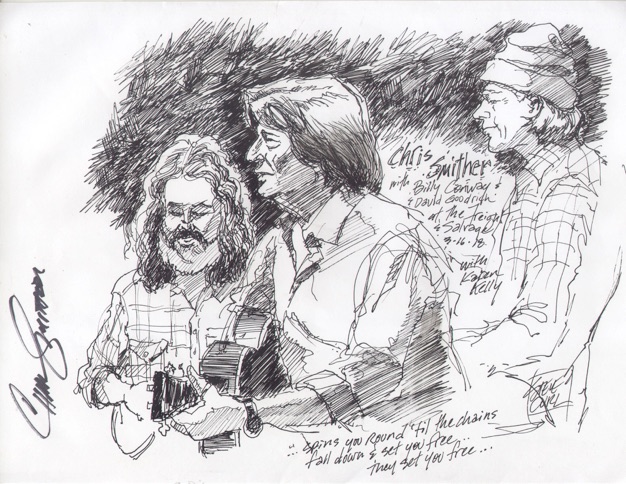 Chris Smither
with Billy Conway &
& David Goodrich
at the Freight
& Salvage
3·16·18
with
Loren
Kelly
... spins you round 'til the chains
fall down & set you free...
they set you free...